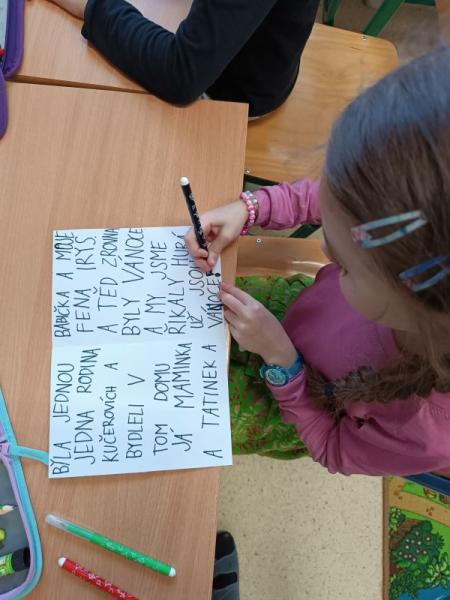 BYLA JEDNOU
JEDNA RODINA
KUČEROVICH A
BYDLELI V
TOM DOMU
JÁ MAMINKA
A TATINEK A
BABIČKA A MOJE
FENA IRYS
A TEĎ ZROVNA
BYLY VÁNOCE
A MY JSME
ŘIKALY HURÁ
UŽ JSOU
VÁNOCE